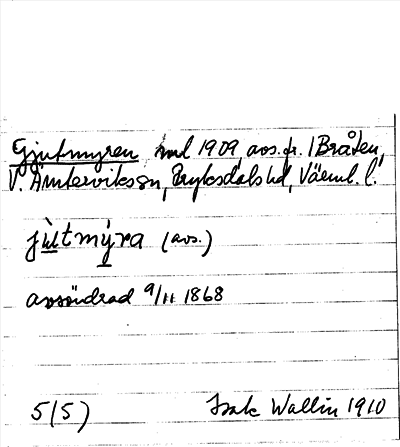 Gjutmyren, ml 1909, avs. fr. 1 Bråten,
V. Ämterviks sn, Fryksdals hd, Värml. l.
jùtmýra (avs.)
avsöndrad 9/11 1868
5(5) Isak Wallin 1910